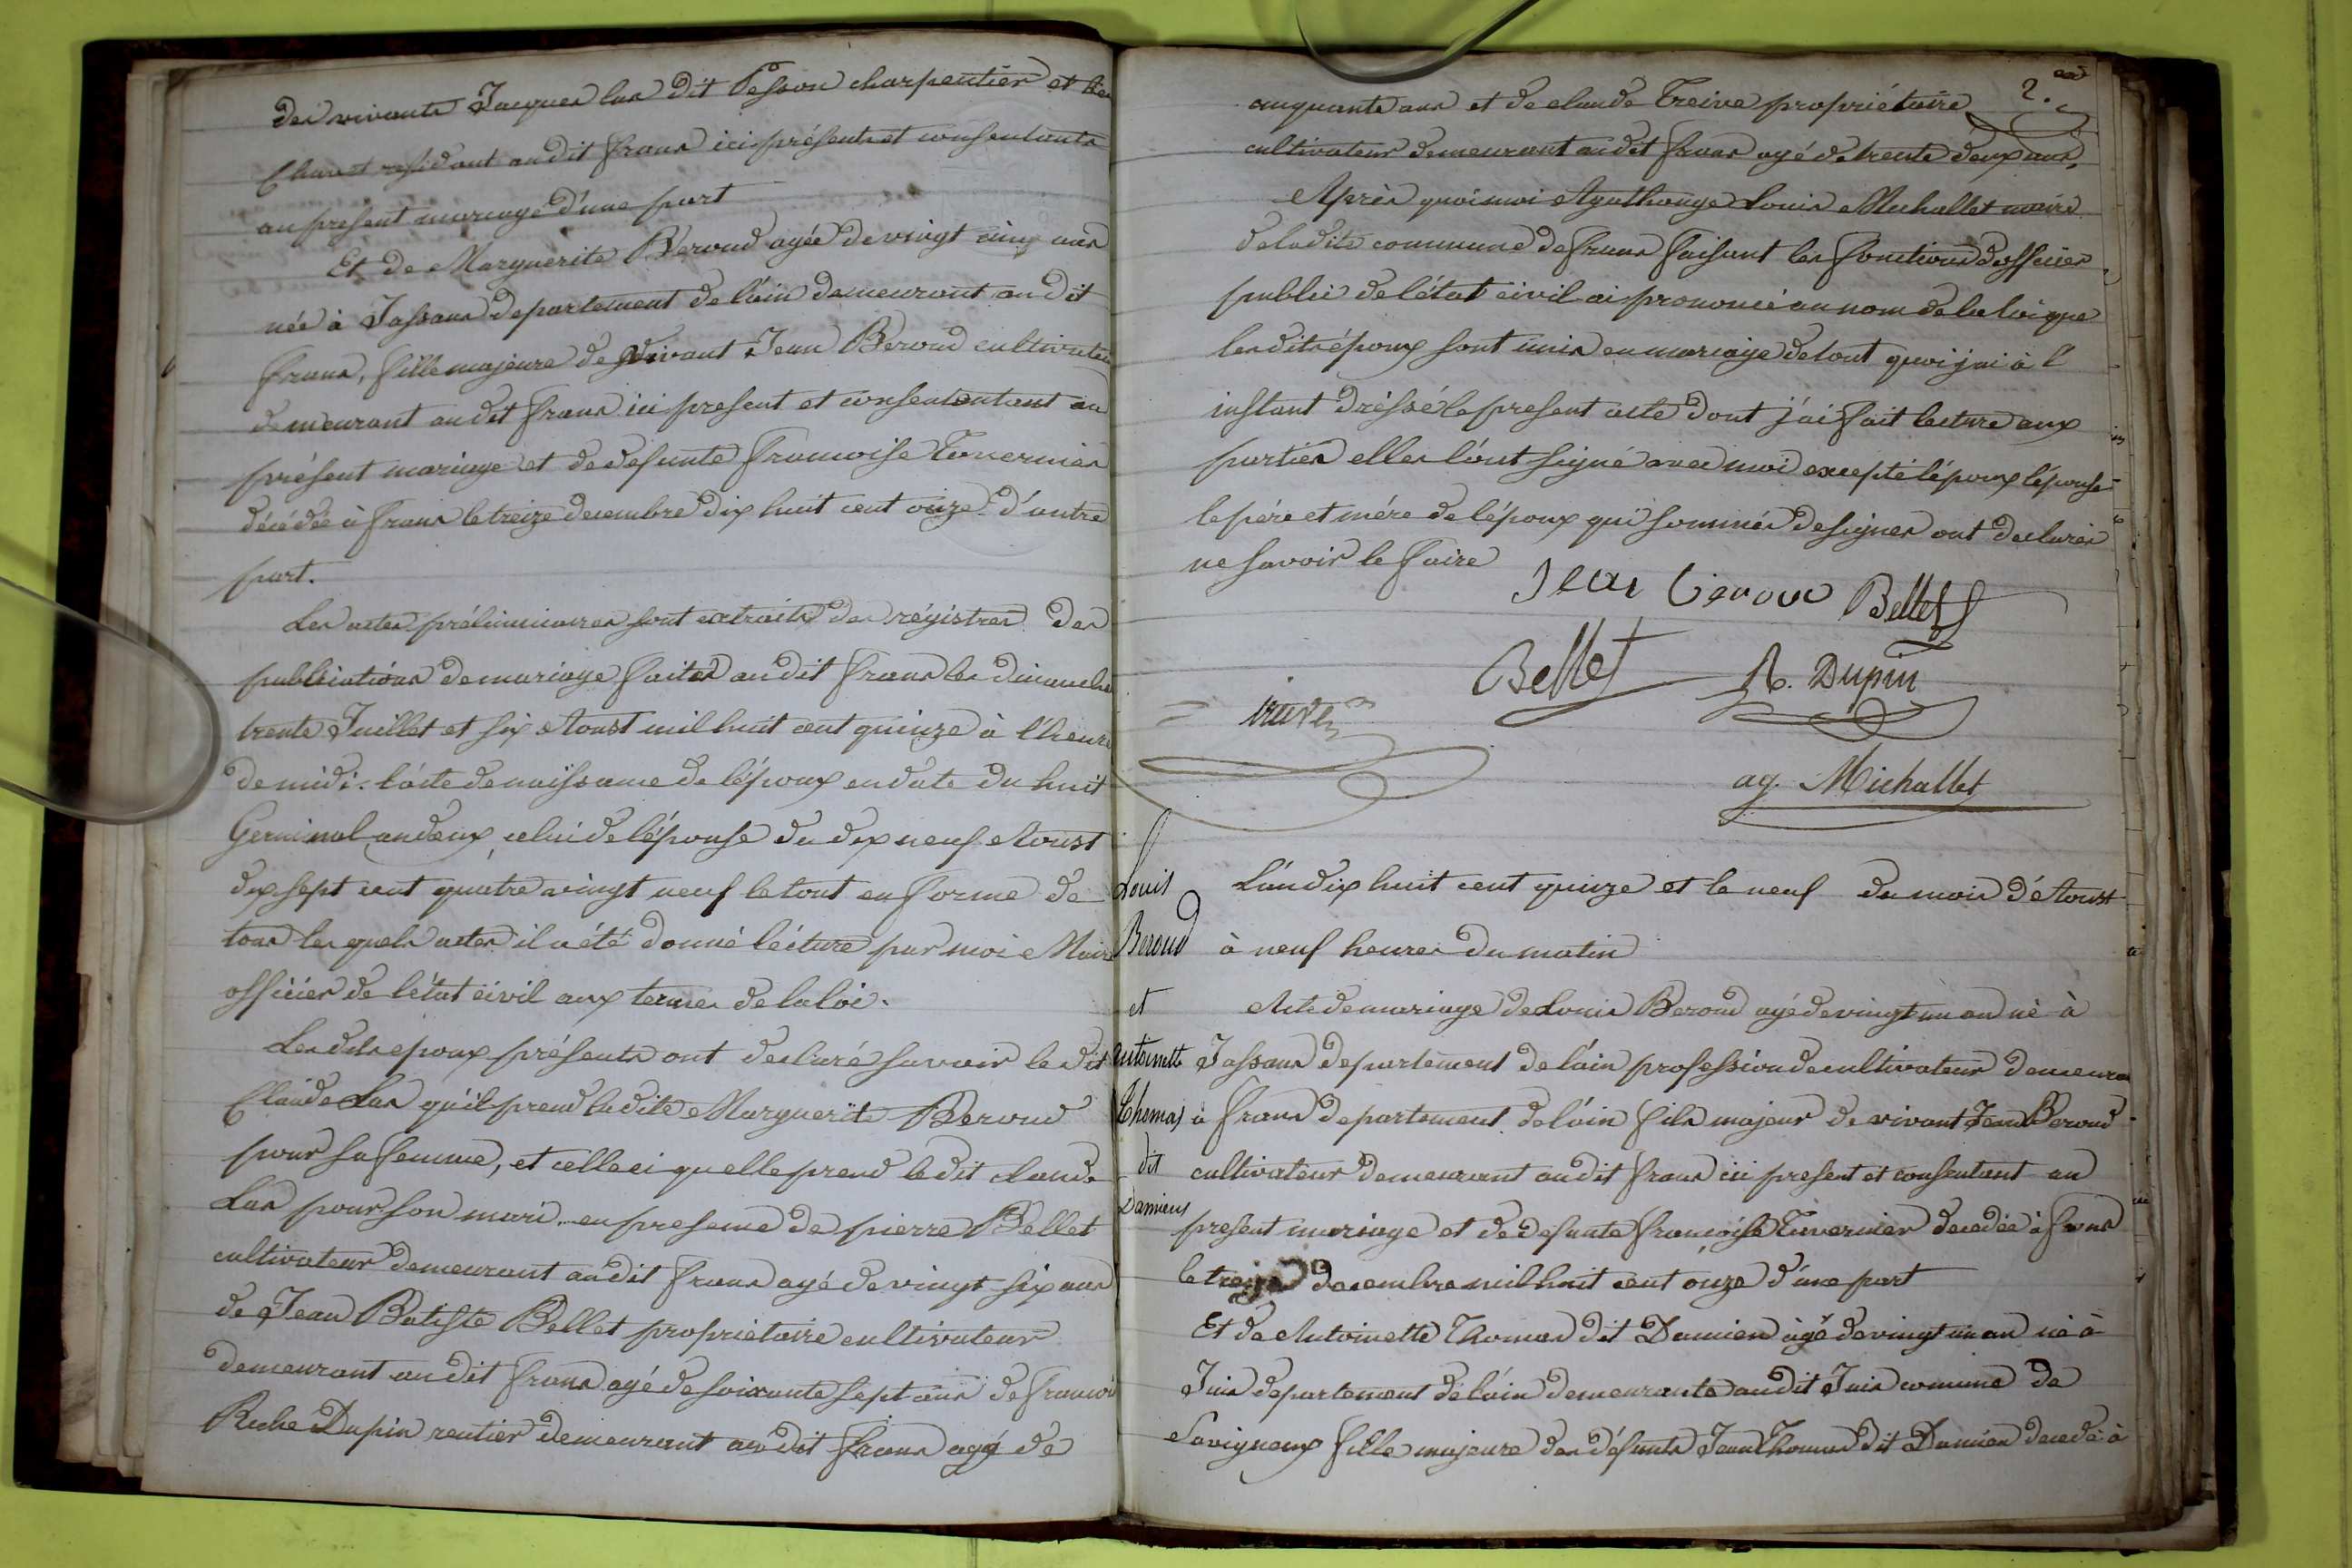 des vivants Jacques Las dit Pesson charpentier et
Charet residant audit frans ici présents et consentants
au present mariage d'une part
Et de Marguerite Beroud agée de vingt cinq ans
née à Jassans departement de l'ain demeurant audit
frans, fille majeure de vivant Jean Beroud cultivateur
demeurant audit frans ici present et consentantant au
présent mariage et de defunte francoise Tavernier
décédée à frans le treize decembre dix huit cent onze d'autre
part.
Les actes préliminaires sont extraits des régistres des
publications de mariage faites audit frans les dimanche
trente Juillet et six Aoust mil huit cent quinze à l'heure
de midi. l'acte de naissance de l'époux en date du huit
Germinal an deux, celui de l'épouse du dix neuf Aoust
dix sept cent quatre vingt neuf le tout en forme de
tous les quels actes il a été donné lécture par moi Maire
officier de l'état civil aux termes de la loi.
Les dits epoux présents ont declaré savoir le dit
Claude Las qu'il prend la dite Marguerite Beroud
pour sa femme, et celle ci qu elle prend le dit Claude
Las pour son mari. en presence de pierre Bellet
cultivateur demeurant audit frans agé de vingt six ans
de Jean Batiste Bellet propriétaire cultivateur
demeurant audit frans agé de soixante sept ans de francois
Riche Dupin rentier demeurant audit frans agé de
2.
cinquante ans et de claude Treive propriétaire
cultivateur demeurant audit frans agé de trente deux ans,
Après quoi moi Agathange Louis Michallet maire
de ladite commune de frans faisant les fonctions d'officier
public de l'état civil ai prononcé au nom de la loi que
les dits époux sont unis en mariage de tout quoi j'ai à l
instant dréssé le present acte dont j'ai fait lecture aux
parties elles l'ont signé avec moi excepté l'époux l'épouse
le père et mére de l'époux qui sommés de signer ont declarés
ne savoir le faire
Jean Beroud Bellet
Bellet R. Dupin
ag. Michallet
Louis
Beroud
et
antoinette
Thomas
dit
Damiens
L'an dix huit cent quinze et le neuf du mois d'Aoust
à neuf heures du matin
Acte de mariage de Louis Beroud agé de vingt un an né à
Jassans departement de l'ain profession de cultivateur demeurant
à frans departement de l'ain fils majeur de vivant Jean Beroud
cultivateur demeurant audit frans ici present et consentant au
present mariage et de defunte francoise Tavernier decedée à frans
le treize decembre mil huit cent onze d'une part
Et de Antoinette Thomas dit Damien agé de vingt un an né à
Juis departement de l'ain demeurante audit Juis comune de
Savigneux fille majeure des défunts Jean Thomas dit Damien decedé à